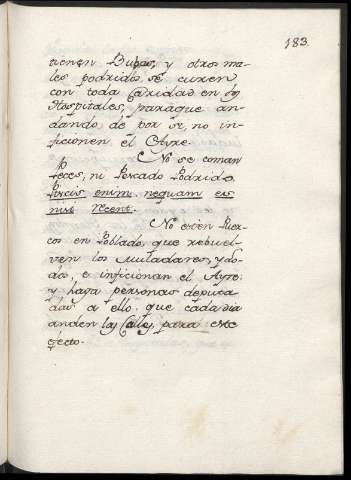 183.
tienen Bubas, y otros ma-
les podridos, se curen
con toda Caridad en los
Hospitales, paraque an-
dando de por si, no in-
ficionen el Ayre.
No se coman
Peces, ni Pescado Podrido.
Piscis enim nequam est
nisi recens.
No esten Puer-
cos en Poblado, que rebuel-
ven los muladares, y lo-
dos, e inficionan el Ayre
y haya personas deputa-
das a ello, que cada dia
anden las Calles para este
efecto.